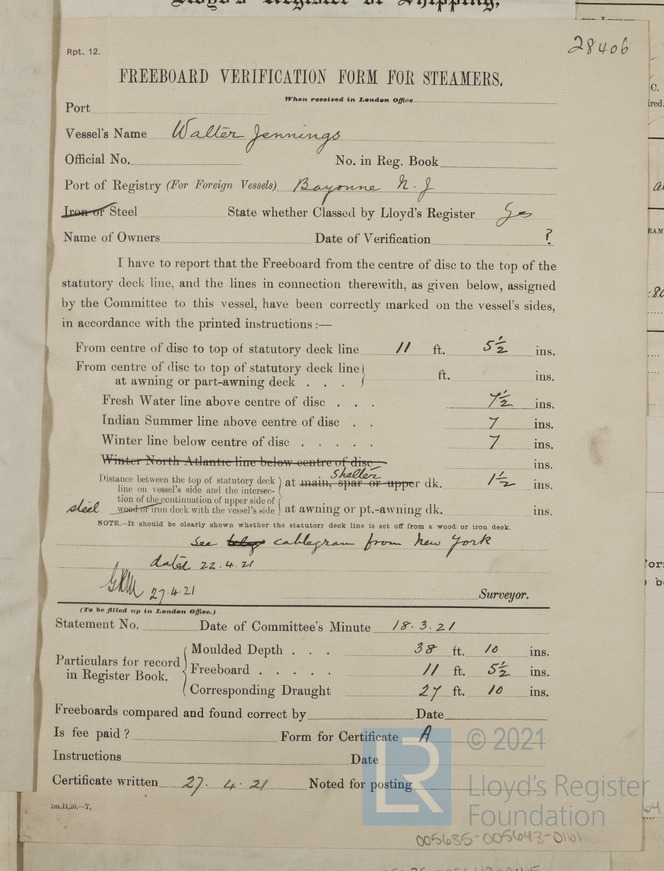 Lloyd's Register of Shipping,
Rpt. 12.
28406
FREEBOARD VERIFICATION FORM FOR STEAMERS.
When received in London Office
Port
Vessel's Name Walter Jennings
Official No. No. in Reg. Book
Port of Registry (For Foreign Vessels) Bayonne N. J
Iron or Steel State whether Classed by Lloyd's Register Yes
Name of Owners Date of Verification ?
I have to report that the Freeboard from the centre of disc to the top of the
statutory deck line, and the lines in connection therewith, as given below, assigned
by the Committee to this vessel, have been correctly marked on the vessel's sides,
in accordance with the printed instructions :—
From centre of disc to top of statutory deck line 11 ft. 5½ ins.
From centre of disc to top of statutory deck line
at awning or part-awning deck . . . ft. ins.
Fresh Water line above centre of disc . . . 7½ ins.
Indian Summer line above centre of disc . . 7 ins.
Winter line below centre of disc . . . . . 7 ins.
Winter North Atlantic line below centre of disc ins.
Distance between the top of statutory deck
line on vessel's side and the intersec-
tion of the continuation of upper side of
steel wood or iron deck with the vessel's side
Shelter
at main, spar or upper dk. 1½ ins.
at awning or pt.-awning dk. ins.
NOTE.—It should be clearly shown whether the statutory deck line is set off from a wood or iron deck.
See cablegram from New York
dated 22.4.21
27.4.21 Surveyor.
(To be filled up in London Office.)
Statement No. Date of Committee's Minute 18.3.21
Particulars for record
in Register Book.
Moulded Depth . . . 38 ft. 10 ins.
Freeboard . . . . . 11 ft. 5½ ins.
Corresponding Draught 27 ft. 10 ins.
Freeboards compared and found correct by Date
Is fee paid? Form for Certificate A
Instructions Date
Certificate written 27.4.21 Noted for posting
2m,11,20.—T.
LR © 2021
Lloyd's Register
Foundation
005635-005643-0161